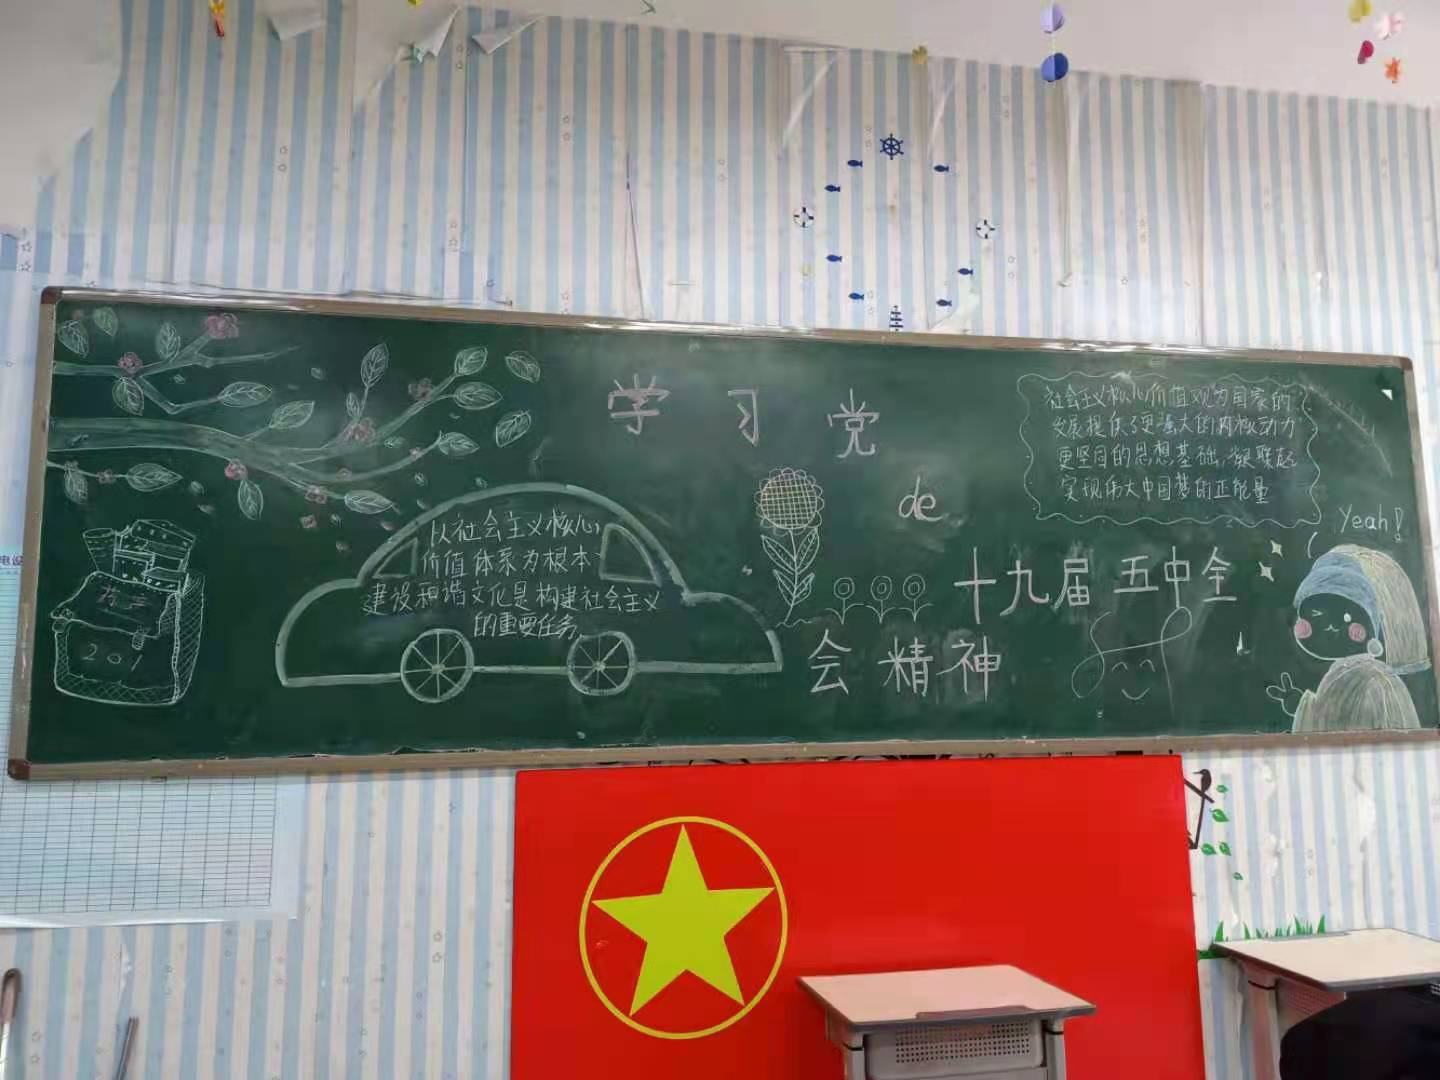 学习党
de
十九届五中全
会精神
从社会主义核心
价值体系为根本
建设和谐文化是构建社会主义
的重要任务
社会主义核心价值观为国家的
发展提供了更强大的内核动力
更坚固的思想基础,凝聚起
实现伟大中国梦的正能量
Yeah!
201